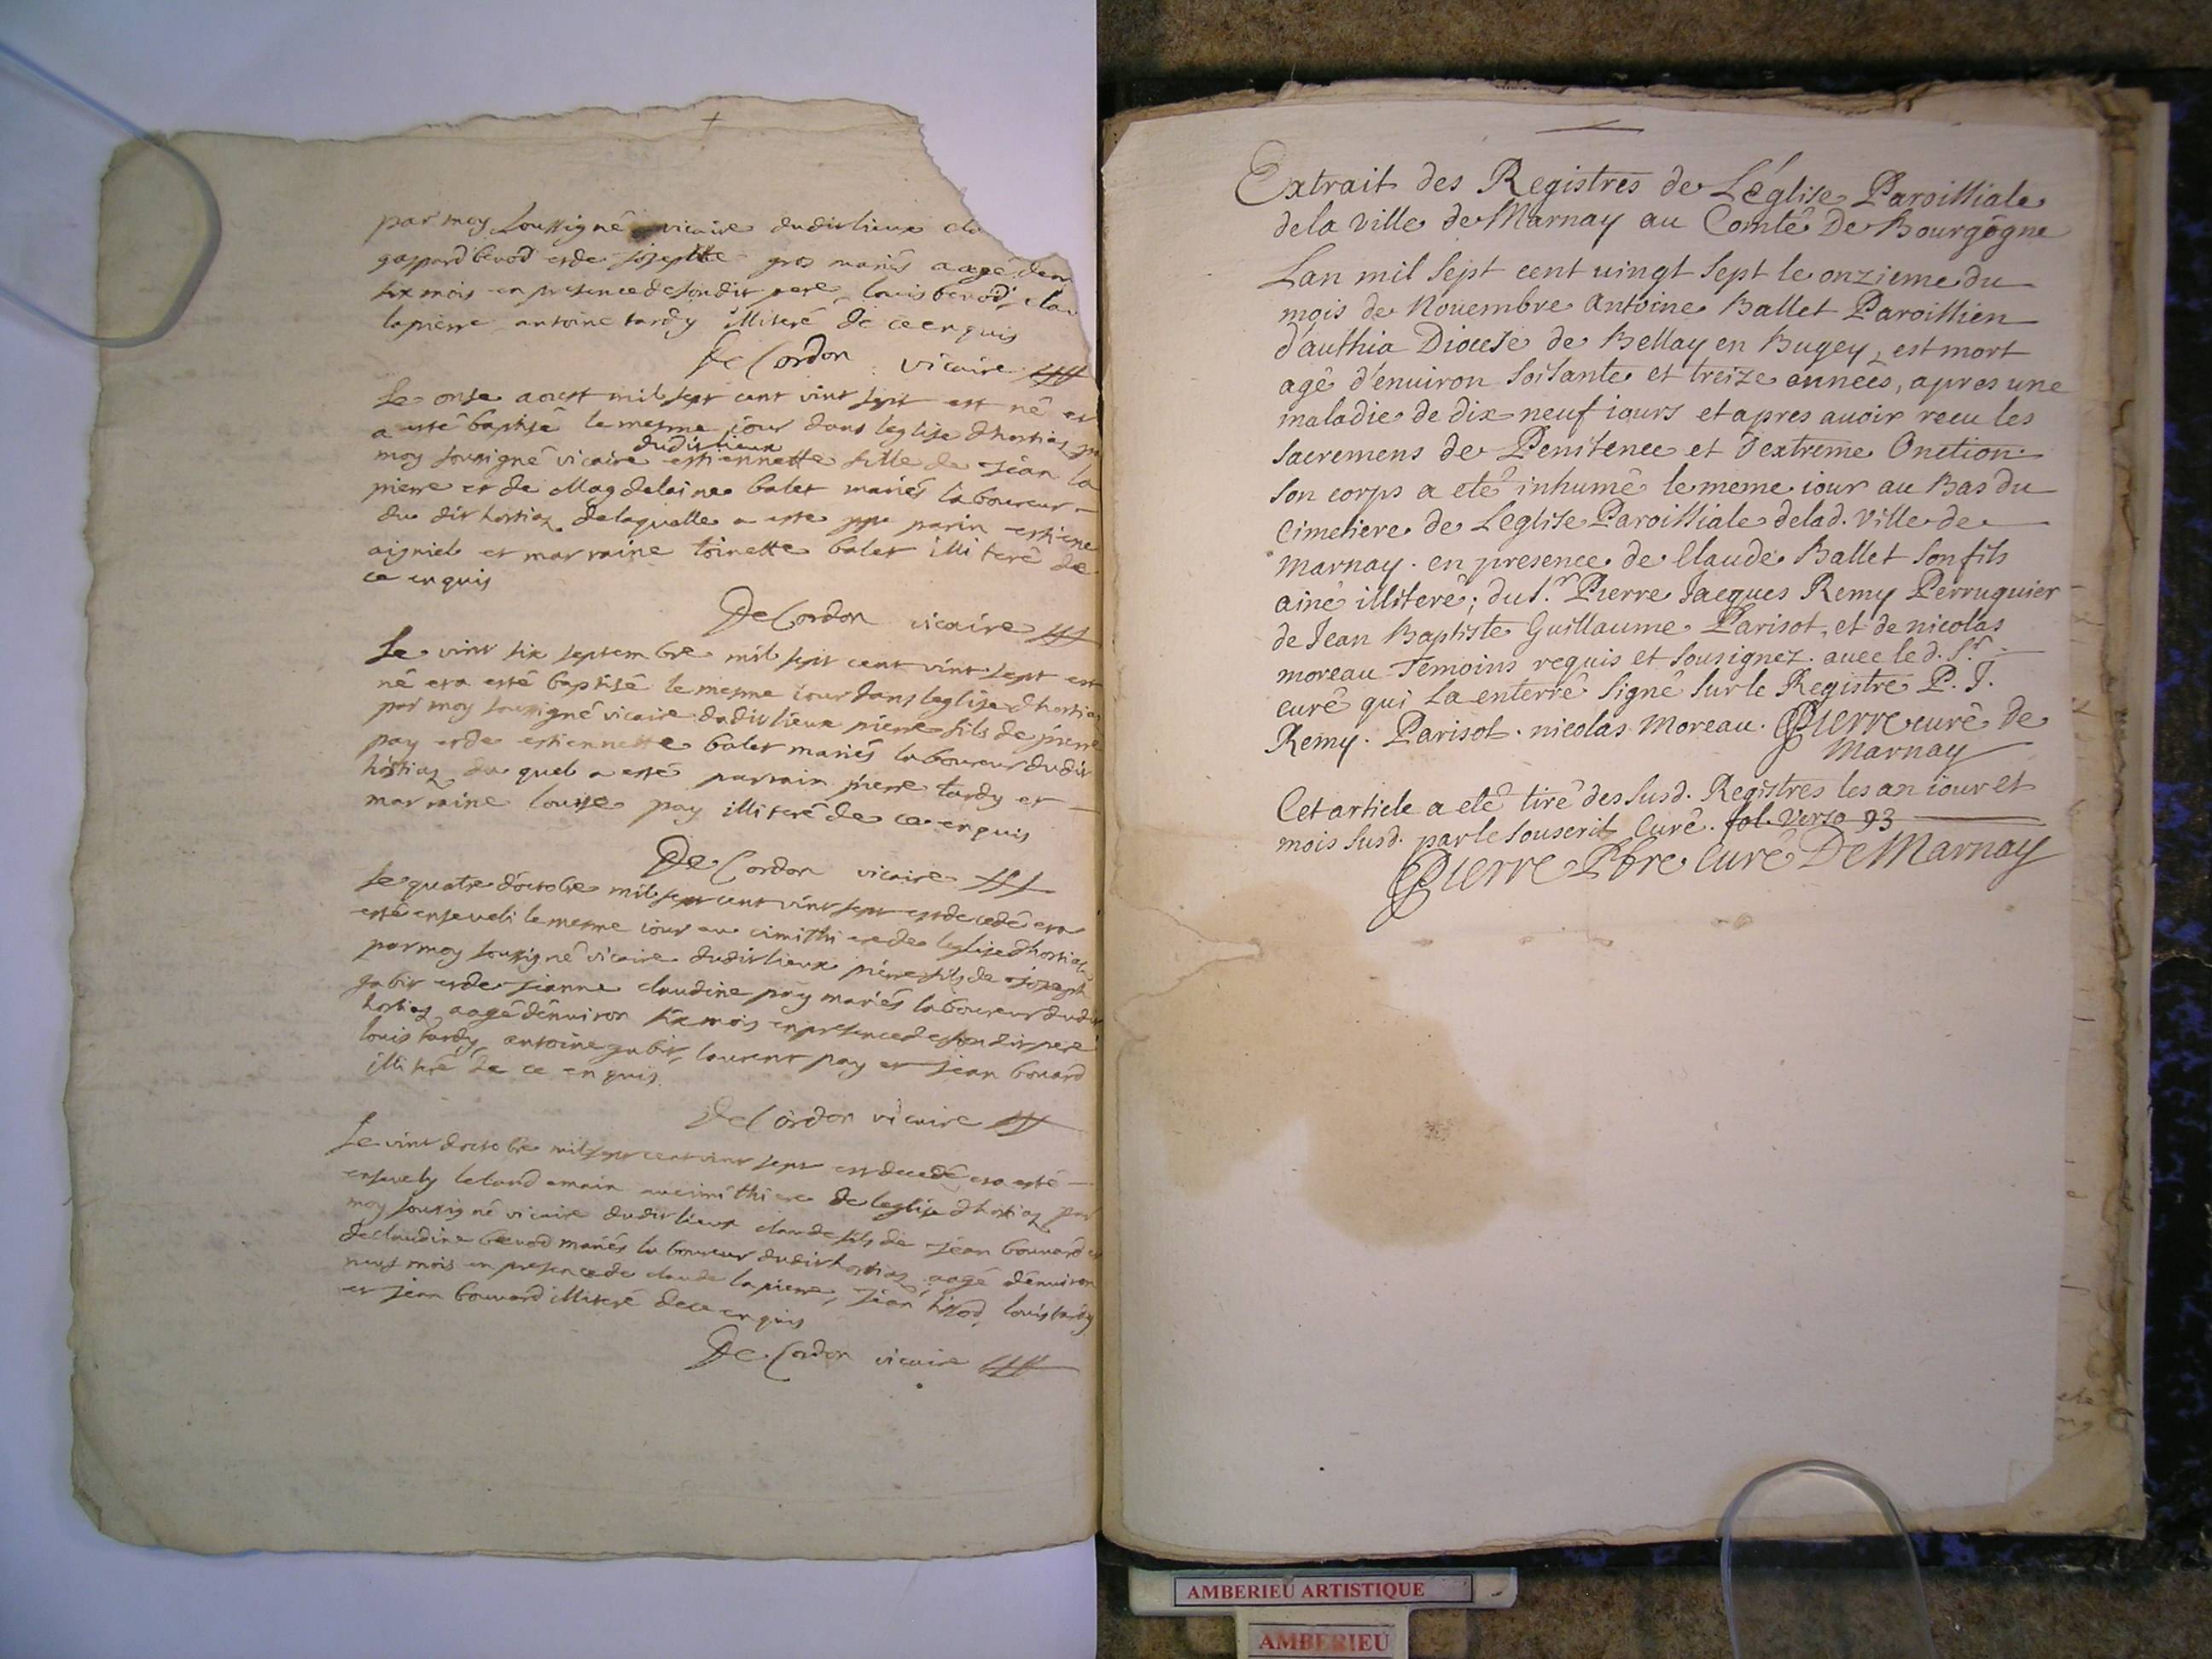 par moy soussigné vicaire dudit lieux cla
gaspard bevod et de josephte gros mariés aagé den
six mois en presence de son dit pere, louis bevod, clau
lapierre antoine tardy illiteré de ce enquis
De Cordon vicaire
Le onse aoust mil sept cent vint sept est né et
a esté baptisé le mesme jour dans leglise dhostiaz pa
dudit lieux
moy sousigné vicaire estiennette fille de jean la
pierre et de Magdelaine balet mariés laboureur
du dit hostiaz de laquelle a esté parin estiene
aigniel et marraine toinette balet illiteré de
ce enquis
De Cordon vicaire
Le vint six septembre mil sept cent vint sept est
né et a esté baptisé le mesme jour dans leglise dhostia
par moy sousigné vicaire dudit lieux pierre fils de pierre
pay et de estiennette balet mariés laboureur du dit
hostiaz du quel a esté parrain pierre tardy et
marraine louise pay illiteré de ce enquis
De Cordon vicaire
Le quatre doctobre mil sept cent vint sept est decedé et a
esté enseveli le mesme jour au cimithiere de leglise dhostiaz
par moy sousigné vicaire dudit lieux pierre fils de joseph
gubit et de jeanne claudine pay mariés laboureur dudit
hostiaz aagé dénviron six mois en presence de son dit pere
louis tardy, antoine gubit, laurent pay et jean bouard
illiteré de ce enquis
De Cordon vicaire
Le vint doctobre mil sept cent vint sept est decedé et a esté
ensevely le landemain au cimithiere de leglise dhostiaz par
moy sousigné vicaire dudit lieux claude fils de jean bouvard et
de claudine bevod mariés laboureur dudit hostiaz aagé dénviron
neuf mois en presence de claude lapierre, jean louis tardy
et jean bouvard illiteré de ce enquis
De Cordon vicaire
Extrait des Registres de L'église Paroissiale
de la ville de Marnay au Comté De Bourgogne
Lan mil sept cent vingt sept le onzieme du
mois de Nouembre Antoine Ballet Paroissien
d'authia Diocese de Bellay en Bugey, est mort
agé d'enuiron soisante et treize années, apres une
maladie de dix neuf iours et apres auoir receu les
sacremens de Penitence et d'extreme Onction
son corps a eté inhumé le meme iour au Bas du
Cimetiere de Leglise Paroissiale de lad. Ville de
Marnay. en presence de Claude Ballet son fils
ainé illiteré; du s.r Pierre Jacques Remy Perruquier
de Jean Baptiste Guillaume Parisot, et de nicolas
moreau Temoins requis et sousignez. auec le d. S.r
curé qui La enterré signé sur le Registre P. J.
Remy. Parisot. nicolas Moreau. Pierre curé de
Marnay
Cet article a eté tiré des susd. Registres les an iour et
mois susd. par le souscrit Curé. fol. verso 93
Pierre Pbre Curé De Marnay
AMBERIEU ARTISTIQUE
AMBERIEU